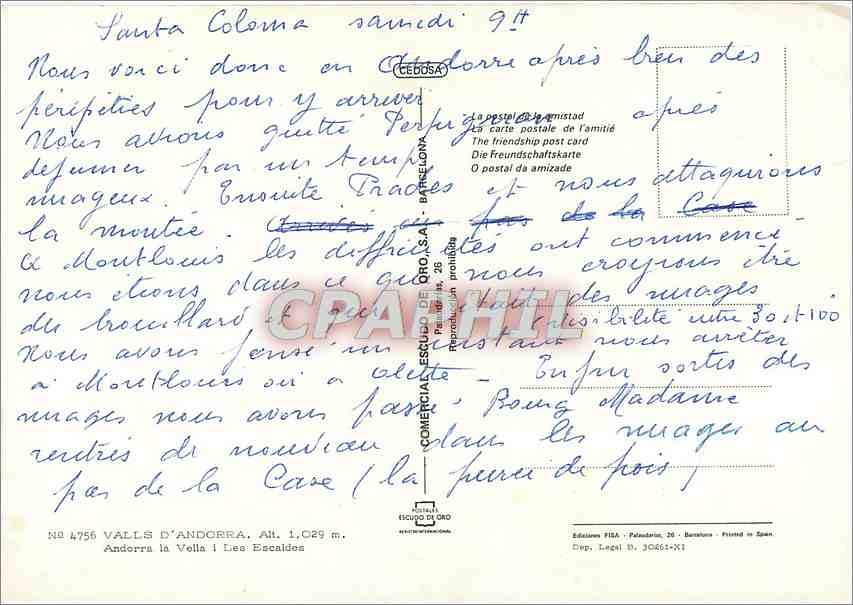 Santa Coloma samedi 9H
Nous voici donc en Andorre après bien des
péripéties pour y arriver
Nous avions quitté Perpignan après
déjeuner par un temps
nuageux. Ensuite Prades et nous attaquions
la montée.
a Montlouis les difficultés ont commencé -
nous étions dans ce que nous croyions être
du brouillard et qui était des nuages
(visibilité entre 30 et 100
Nous avons pensé un instant nous arrêter
à Montlouis où a Olette - Enfin sortis des
nuages nous avons passé Bourg Madame
rentrés de nouveau dans les nuages au
pas de la Case (la purée de pois)
CEDOSA
La postal de la amistad
La carte postale de l'amitié
The friendship post card
Die Freundschaftskarte
O postal da amizade
COMERCIAL ESCUDO DE ORO, S.A. - BARCELONA
Palaudarias, 26
Reproducción prohibida
CPAPHIL
POSTALES
ESCUDO DE ORO
Nº 4756 VALLS D'ANDORRA. Alt. 1,029 m.
Andorra la Vella i Les Escaldes
Ediciones FISA - Palaudarias, 26 - Barcelona - Printed in Spain.
Dep. Legal B. 30261-XI